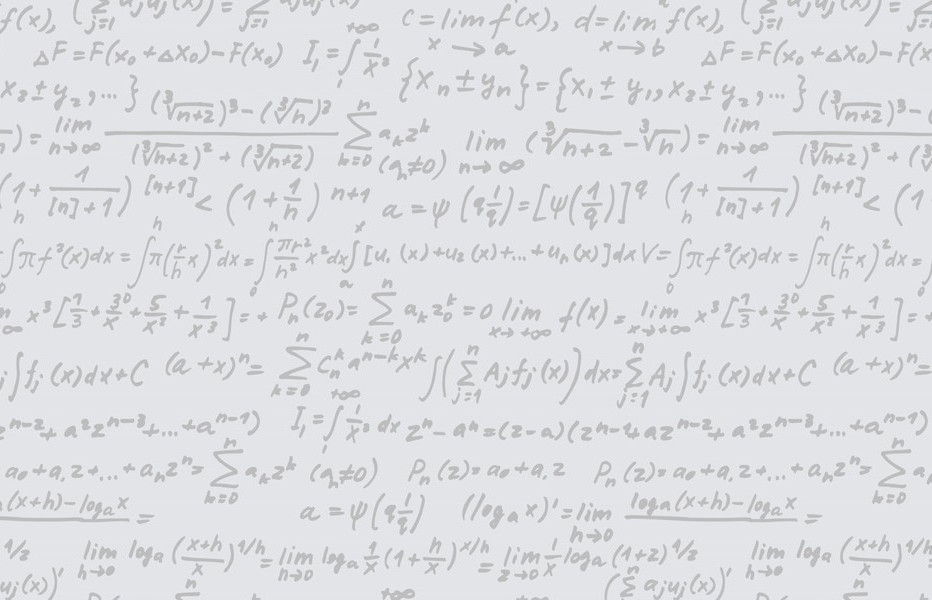 f(x), (∑ j=1 ajuj(x))' = ∑ j=1 ajuj(x), c = lim x→a f'(x), d = lim x→b f'(x), (∑ j=1 ajuj(x))' = ∑ j=1
ΔF = F(x₀ + Δx₀) − F(x₀) I₁ = ∫₁^{+∞} 1/x³ ΔF = F(x₀ + Δx₀) − F(x
x₂ ± y₂, ... } {xₙ ± yₙ} = {x₁ ± y₁, x₂ ± y₂, ... }
) = lim n→∞ ((∛n+2)³ − (∛n)³) / ((∛n+2)² + (∛n+2)) ∑ k=0 n aₖzᵏ (aₙ≠0) lim n→∞ (∛n+2 − ∛n) = lim n→∞ (∛n+2)³ − / (∛n+2)² + (∛
(1 + 1/([n]+1))^[n+1] < (1 + 1/n)^n+1 a = ψ(q 1/q) = [ψ(1/q)]^q (1 + 1/([n]+1))^[n+1] < (1
∫₀ʰ πf²(x)dx = ∫₀ʰ π(r/h x)² dx = ∫₀ʰ πr²/h² x² dx ∫ₐˣ [u₁(x) + u₂(x) + ... + uₙ(x)]dx V = ∫₀ʰ πf²(x)dx = ∫₀ʰ π(r/h x)² dx =
∞ x³[7/3 + 30/x + 5/x² + 1/x³] = + Pₙ(z₀) = ∑ k=0 n aₖz₀ᵏ = 0 lim x→+∞ f(x) = lim x→+∞ x³[7/3 + 30/x + 5/x² + 1/x³] = +
j ∫fj(x)dx + C (a + x)ⁿ = ∑ k=0 n Cₙᵏ aⁿ⁻ᵏxᵏ ∫(∑ j=1 n Ajfj(x))dx = ∑ j=1 n Aj ∫fj(x)dx + C (a + x)ⁿ =
zⁿ⁻² + a²zⁿ⁻³ + ... + aⁿ⁻¹) I₁ = ∫₁^{+∞} 1/x³ dx zⁿ − aⁿ = (z − a)(zⁿ⁻¹ + azⁿ⁻² + a²zⁿ⁻³ + ... + aⁿ⁻¹)
a₀ + a₁z + ... + aₙzⁿ = ∑ k=0 n aₖzᵏ (aₙ≠0) Pₙ(z) = a₀ + a₁z Pₙ(z) = a₀ + a₁z + ... + aₙzⁿ = ∑ k=0 n a
(x+h) − logₐx = a = ψ(q 1/q) (logₐx)' = lim h→0 logₐ(x+h) − logₐx =
1/z lim h→0 logₐ((x+h)/x)^1/h = lim h→0 logₐ 1/x (1 + h/x)^x/h = lim z→0 1/x logₐ(1+z)^1/z lim h→0 logₐ((x+h)/x)^1/h
uj(x))' n +∞ (∑ n ajuj(x))' n